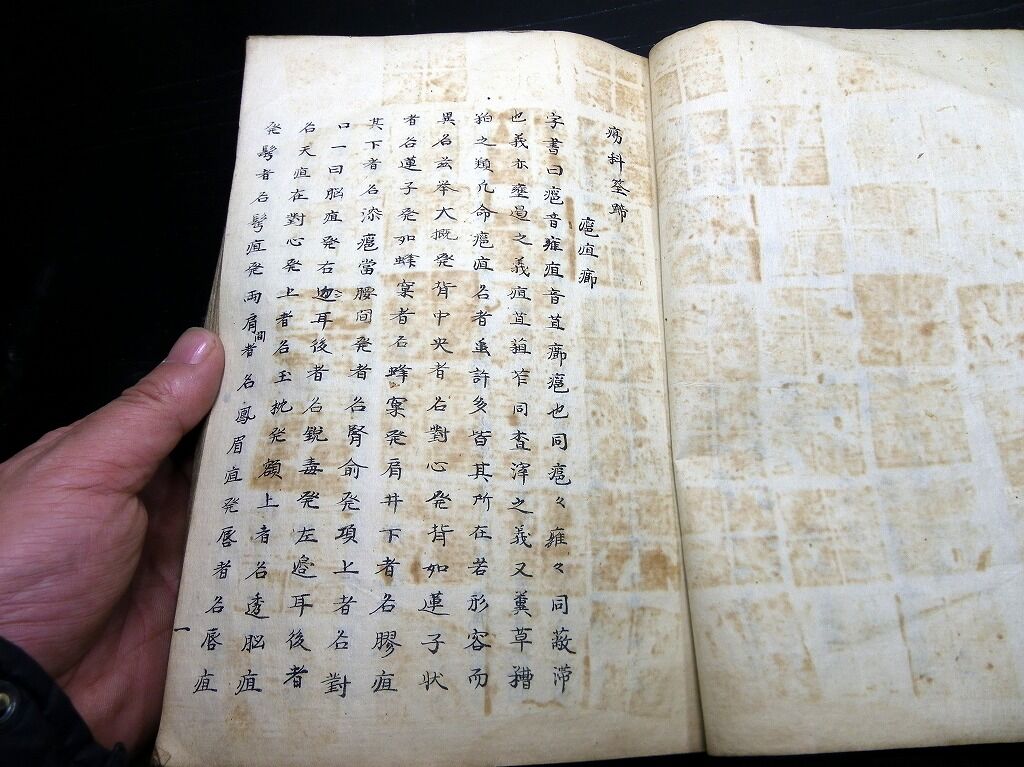 瘍科筌蹄
癰疽癤
字書曰癰音雍疽音苴癤癰也同癰々雍々同蔽滞
也義亦壅遏之義疽苴葅苲同査滓之義又糞草糟
粕之類凡命癰疽名者虽許多皆其所在若形容而
異名玆挙大概発背中央者名對心発背如蓮子状
者名蓮子発如蜂窠者名蜂窠発肩井下者名膠疽
其下者名漆癰當腰間発者名腎俞発項上者名對
口一曰脳疽発右边耳後者名鋭毒発左邉耳後者
名天疽在對心発上者名玉枕発顖上者名透脳疽
発髩者名髩疽発両肩間者名鳳眉疽発唇者名唇疽
一